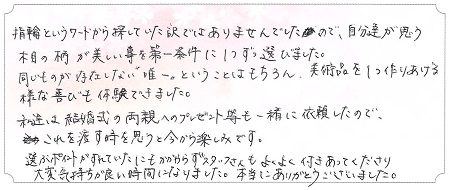 指輪というワードから探していた訳ではありませんでしたので、自分達が思う
木目の柄が美しい事を第一条件に1つずつ選びました。
同じものが存在しない"唯一"ということはもちろん、美術品を1つ作りあげる
様な喜びも体験できました。
私達は結婚式の両親へのプレゼント等も一緒に依頼したので、
これを渡す時を思うと今から楽しみです。
選ぶポイントがずれていたにもかかわらずスタッフさんもよくよく付きあってくださり
大変気持ちが良い時間になりました。本当にありがとうございました。